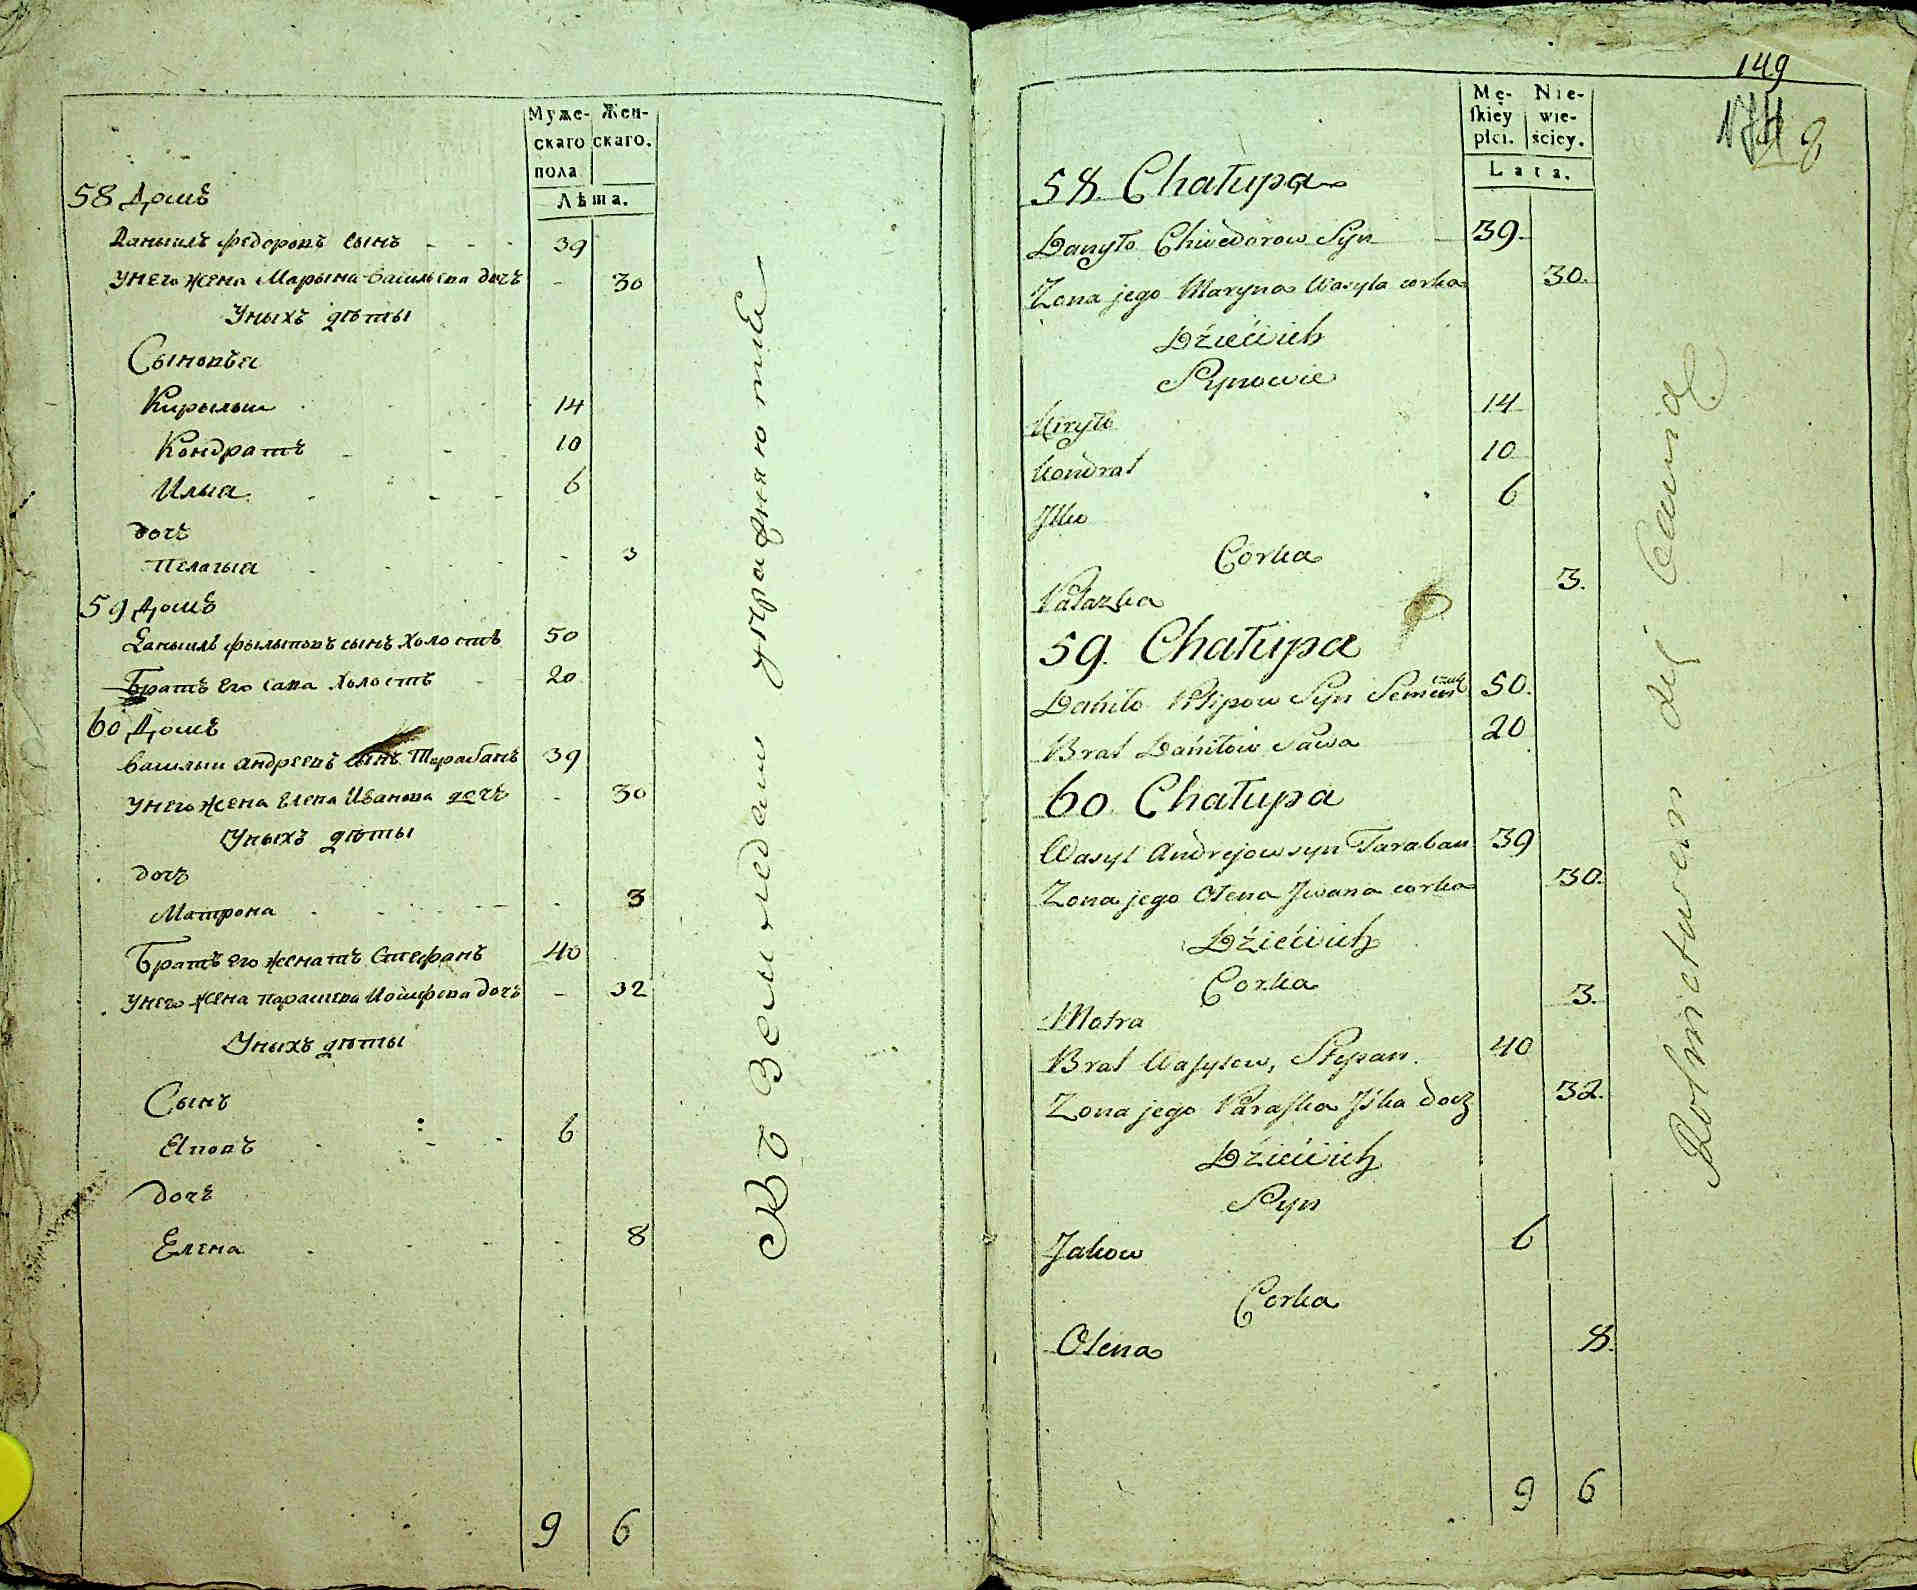 Муже-
скаго
пола
Жен-
скаго.
Лѣта.
58 Домъ
Данылъ Федоровъ сынъ 39
Унего жена Марына Васильева дочъ 30
Уныхъ дѣты
Сыновъя
Кирылыи 14
Кондратъ 10
Илыя 6
дочъ
Пелагыя 3
59 Домъ
Данылъ Фылыповъ сынъ Холостъ 50
Братъ Его Сава Холостъ 20
60 Домъ
Василыи Андреевъ сынъ Тарабанъ 39
Унего жена Елена Иванова дочъ 30
Уныхъ дѣты
дочъ
Матрона 3
Братъ его женатъ Стефанъ 40
Унего жена Параскева Иосифова дочъ 32
Уныхъ дѣты
Сынъ
Яковъ 6
дочъ
Елена 8
9 6
Въ Земледелии упражняютце
149
8
Mę-
skiey
płci.
Nie-
wie-
ściey.
Lata.
58. Chałupa
Danyło Chwedorow Syn 39
Zona jego Maryna Wasyla corka 30.
Dźieći ich
Synowie
Kiryło 14
Kondrat 10
Jlko 6
Corka
Pałazka 3.
59. Chałupa
Daniło Filipow Syn 50.
Brat Daniłow Sawa 20
60. Chałupa
Wasyl Andrejow syn Taraban 39
Zona jego Olena Jwana corka 30.
Dźieći ich
Corka
Motra 3.
Brat Wasylew, Stepan. 40
Zona jego Paraska Jśka docz 32.
Dźieći ich
Syn
Jakow 6
Corka
Olena 8.
9 6
Rolnictwem się bawią